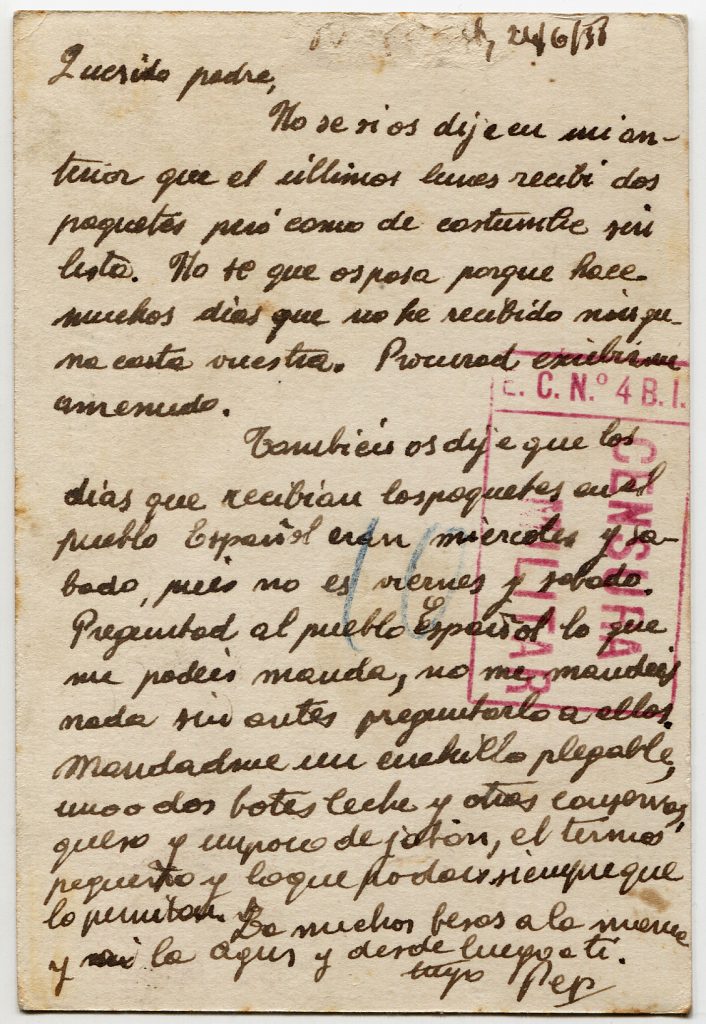 24/6/38
Querido padre,
No se si os dije en mi an-
terior que el últimos lunes recibi dos
paquetes peró como de costumbre sin
lista. No se que os pasa porque hace
muchos dias que no he recibido ningu-
na carta vuestra. Procurad escribirme
amenudo.
Tambien os dije que los
dias que recibian los paquetes en el
pueblo Español eran miercoles y sa-
bado, pues no es viernes y sabado.
Preguntad al pueblo Español lo que
me podeis manda, no me mandeis
nada sin antes preguntarlo a ellos.
Mandadme un cuchillo plegable,
uno o dos botes leche y otras conservas,
queso y un poco de jabón, el termos
pequeño y lo que podais siempre que
lo permitan.
Da muchos besos a la mama
y a la Agus y desde luego a ti.
tuyo Pep
10
E. C. N.º 4 B. I.
CENSURA
MILITAR